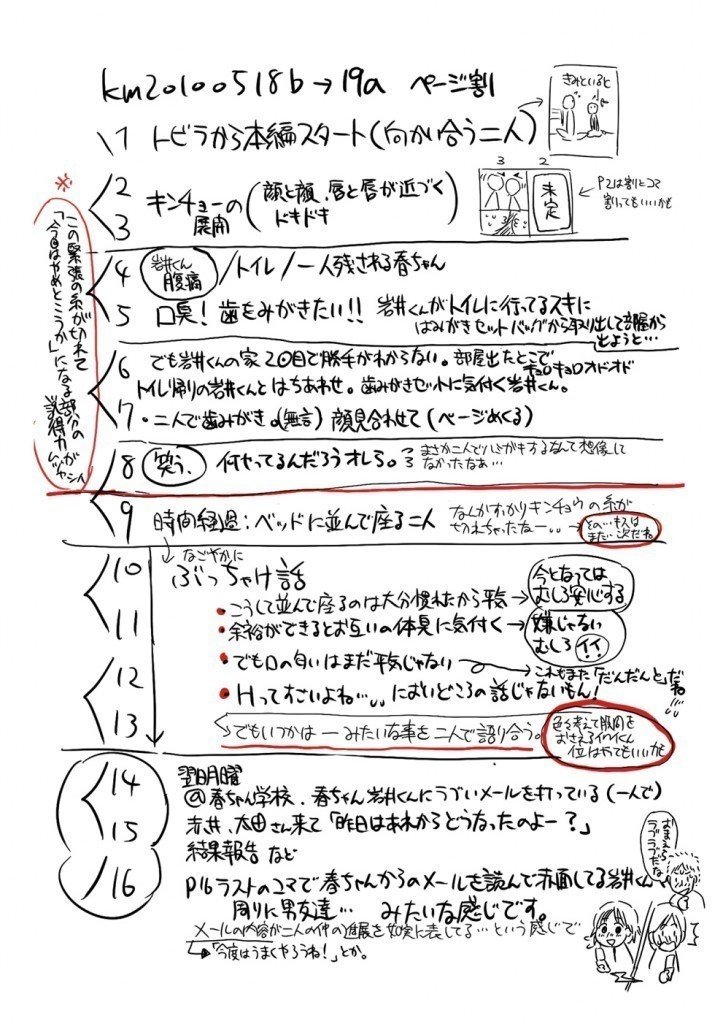 km20100518b→19a ページ割
1 トビラから本編スタート(向かい合う二人)
きみといると
2
3
キンチョーの
展開
(顔と顔、唇と唇が近づく
ドキドキ)
3 2
未定
P2は割とコマ
割ってもいいかも
※
この緊張の糸が切れて
「今日はやめとこうか」になる部分の
説得力が
4 岩井くん
腹痛
/トイレ/一人残される春ちゃん
5 口臭!歯をみがきたい!! 岩井くんがトイレに行ってるスキに
はみがきセットバッグから取り出して部屋から
出ようと…
6 でも岩井くんの家2回目で勝手がわからない。部屋出たとこで
キョロキョロオドオド
トイレ帰りの岩井くんとはちあわせ。歯みがきセットに気付く岩井くん。
7 ・二人で歯みがき。(無言)顔見合わせて(ページめくる)
8 笑う、 何やってるんだろうオレら。
まさか二人でハミガキするなんて想像して
なかったなぁ…
9 時間経過:ベッドに並んで座る二人
なんかすっかりキンチョウの糸が
切れちゃったなー‥→
その…キスは
また…次だね。
10
11
12
13
なごやかに
ぶっちゃけ話
・こうして並んで座るのは大分慣れたから平気→
今となっては
むしろ安心する
・余裕ができるとお互いの体臭に気付く→
嫌じゃない
むしろイイ
・でも口の匂いはまだ平気じゃない
→これもまた「だんだんと」だね
・Hってすごいよね…‥においどころの話じゃないもん!
でもいつかは ― みたいな事を二人で語り合う。
色々考えて股間を
おさえるイワイくん
位はやてもいいかも
14
15
翌日月曜
@春ちゃん学校、春ちゃん岩井くんにラブいメールを打っている(一人で)
赤井、太田さん来て「昨日はあれからどうなったのよー?」
結果報告 など
16 P16ラストのコマで春ちゃんからのメールを読んで赤面してる岩井くん
周りに男友達… みたいな感じです。
メールの内容が二人の仲の進展を如実に表してる…という感じで
→「今度はうまくやろうね!」とか。
おまえら
ラブラブだな